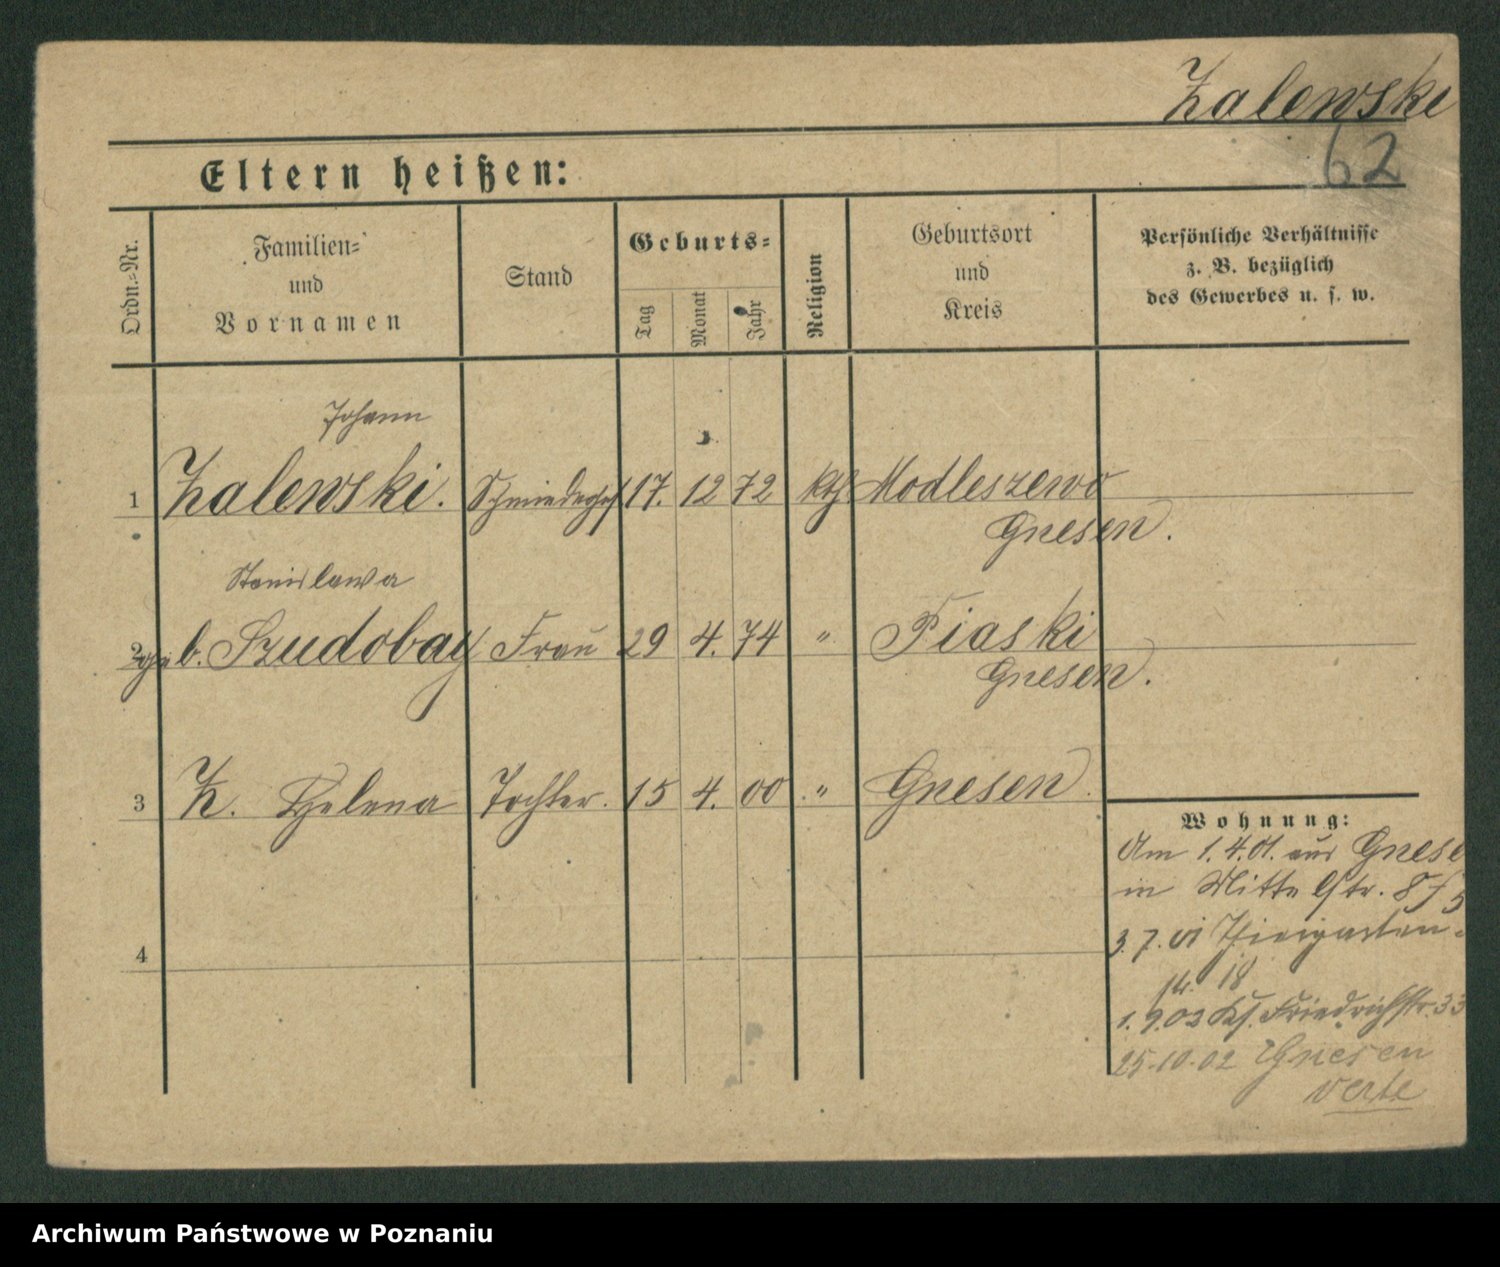 Zalewski
62
Eltern heißen:
Ordn.-Nr.
Familien-
und
Vornamen
Stand
Geburts-
Tag
Monat
Jahr
Religion
Geburtsort
und
Kreis
Persönliche Verhältnisse
z. B. bezüglich
des Gewerbes u. s. w.
Johann
1 Zalewski. 17. 12 72 kth Modleszewo
Gnesen.
Stanislawa
2 geb. Szudobay Frau 29 4. 74 " Piaski
Gnesen.
3 Z. Helena Tochter. 15 4. 00 " Gnesen.
4
Wohnung:
Am 1.4.01. aus Gnese
in Mittelstr. 8
3.7.01 Thiergarten-
str. 18
1.9.02 Friedrichstr. 33
25.10.02 Gnesen
verte
Archiwum Państwowe w Poznaniu